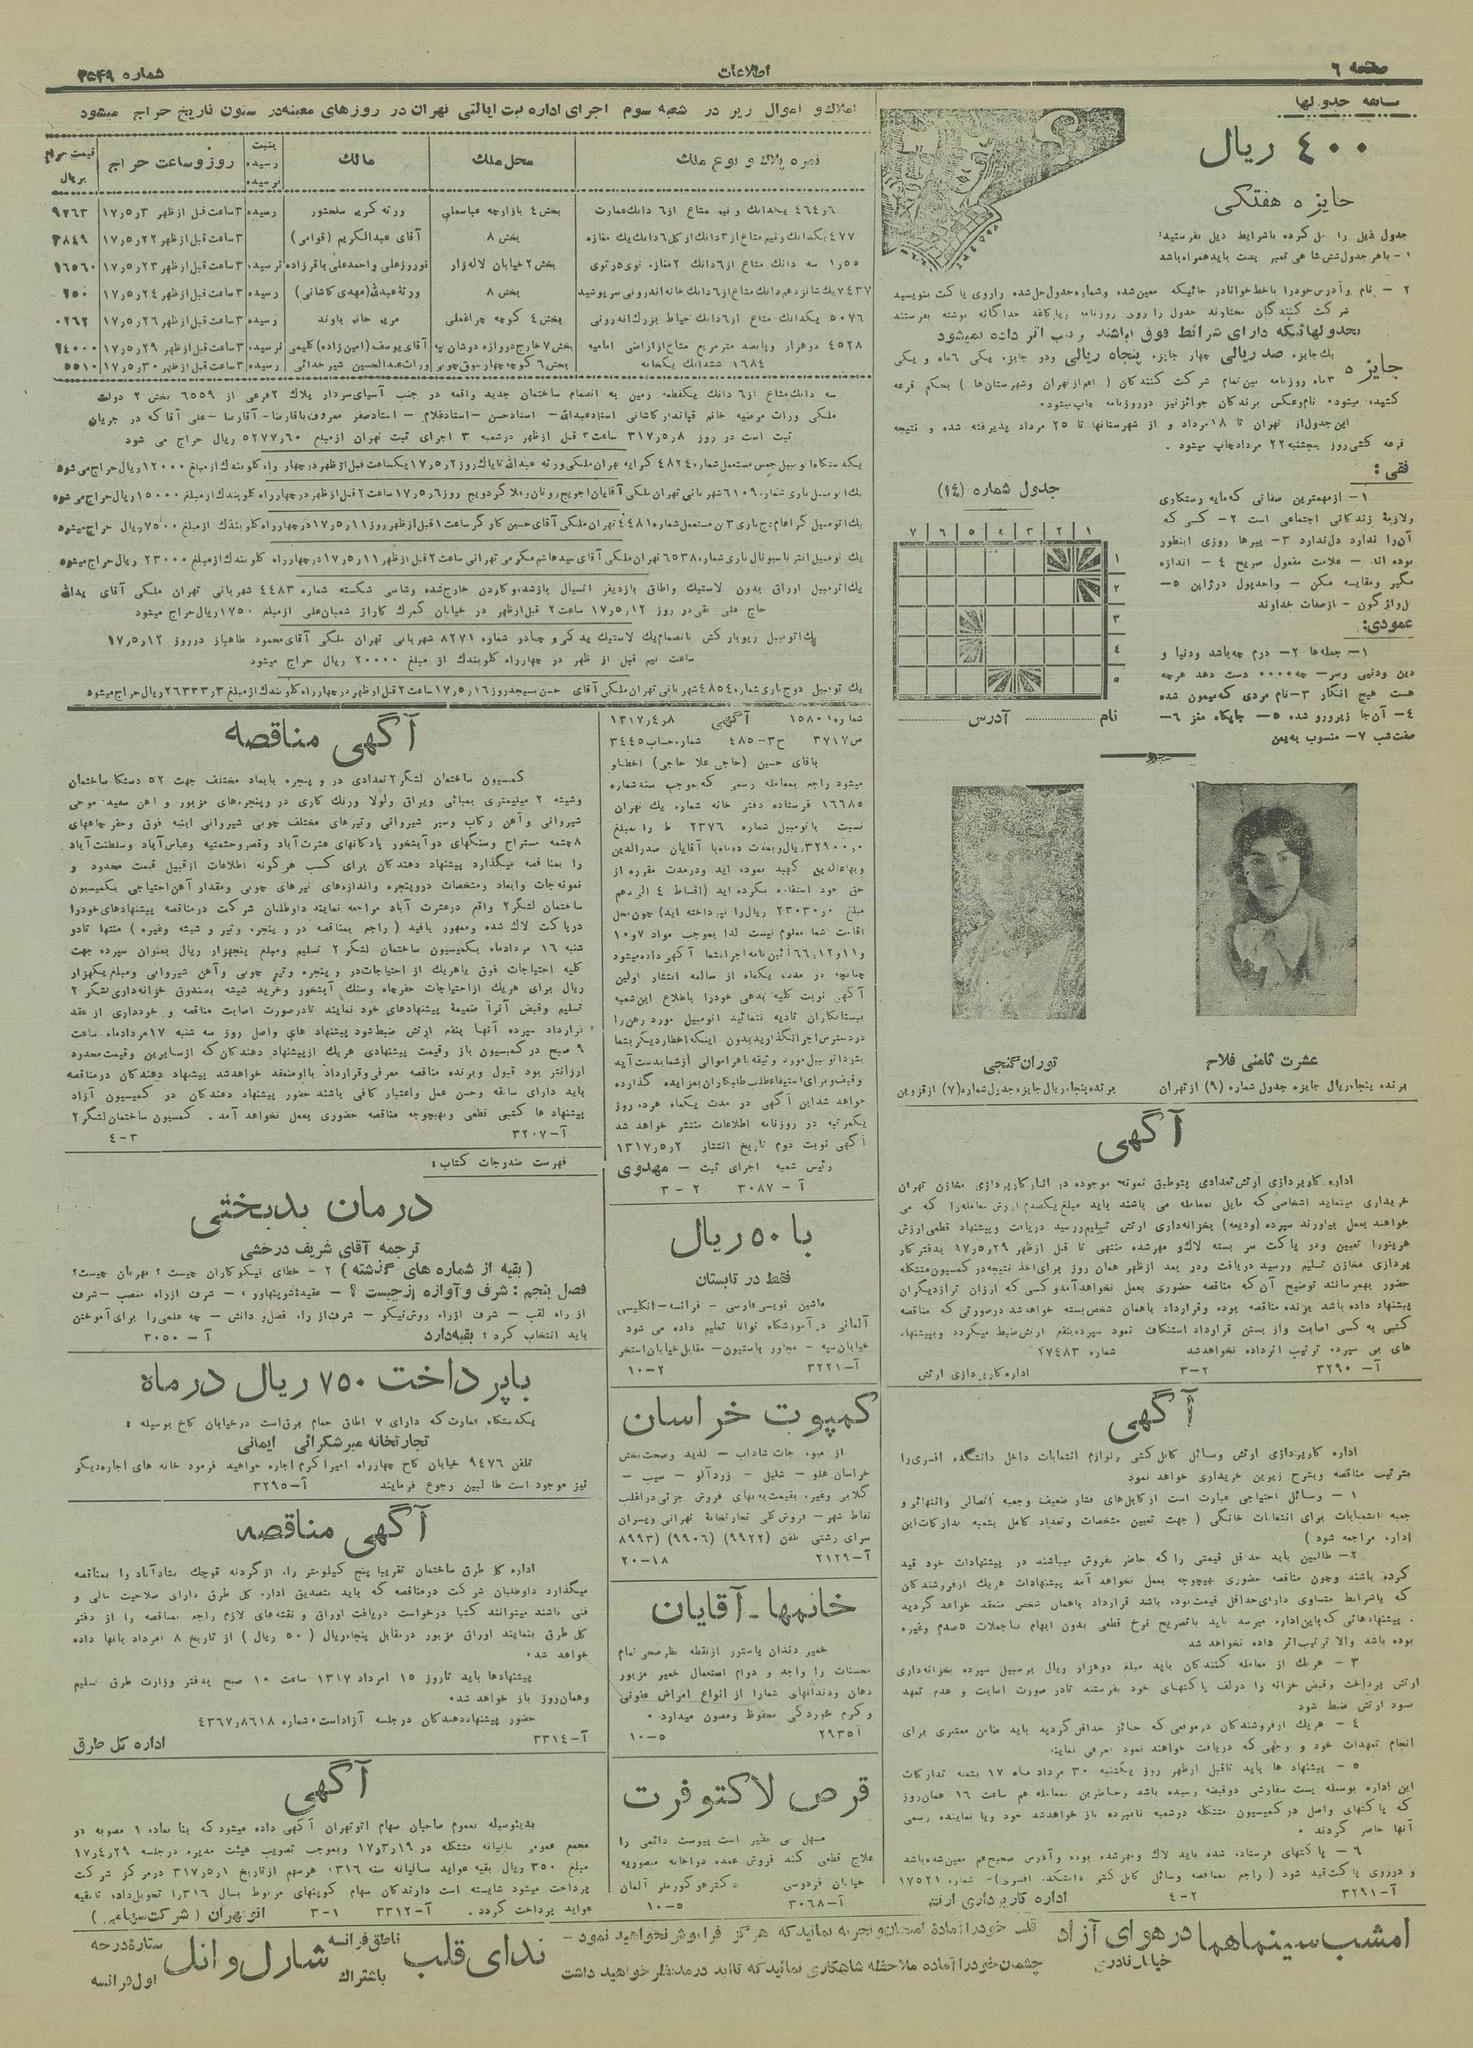 صفحه ۶
اطلاعات
شماره ۳۵۴۹
مسابقه جدولها
۴۰۰ ریال
جایزه هفتگی
جدول ذیل را حل کرده باشرایط ذیل بفرستید:
۱- باهر جدول شش شاهی تمبر پست باید همراه باشد
۲ - نام وآدرس خودرا باخط خوانادر جائیکه معین شده وشماره جدول حل شده راروی پاکت بنویسید
شرکت کنندگان مختارند جدول را روی روزنامه یا کاغذ جداگانه نوشته بفرستند
بجدولهائیکه دارای شرائط فوق نباشند ترتیب اثر داده نمیشود
جایزه
یك جایزه صد ریالی چهار جایزه پنجاه ریالی ودو جایزه یکی ۶ ماه و یکی
۳ ماه روزنامه بین تمام شرکت کنندگان ( اعم از تهران وشهرستان ها ) بحکم قرعه
کشیده میشود. نام وعکس برندگان جوائز نیز در روزنامه چاپ میشود.
این جدول از تهران تا ۱۸ مرداد و از شهرستانها تا ۲۵ مرداد پذیرفته شده و نتیجه
قرعه کشی روز پنجشنبه ۲۲ مرداد چاپ میشود.
افقی :
۱- ازمهمترین صفاتی که مایه رستکاری
ولازمهٔ زندگانی اجتماعی است ۲- کسی که
آن را ندارد دل ندارد ۳- پیرها روزی اینطور
بوده اند - علامت مفعول صریح ۴ - اندازه
مگیر ومقایسه مکن - واحد پول در ژاپن ۵-
واژگون - از صفات خداوند
عمودی:
۱- جمله ها ۲- درم چه باشد ودنیا و
دین ودنیی وسر- چه .... دست دهد هرچه
هست هیچ انگار ۳- نام مردی که میمون شده
۴- آن جا زیر ورو شده ۵- جایگاه مغز ۶-
صفت شب ۷- منسوب به یمن
جدول شماره (۱۴)
۱ ۲ ۳ ۴ ۵ ۶ ۷
۱
۲
۳
۴
۵
نام ........ آدرس ........
عشرت ثامنی فلاح
برنده پنجاه ریال جایزه جدول شماره (۹) از تهران
توران گنجی
برنده پنجاه ریال جایزه جدول شماره (۷) از قزوین
آگهی
اداره کارپردازی ارتش تعدادی پتو طبق نمونه موجوده در انبار کارپردازی مخازن تهران
خریداری مینماید اشخاصی که مایل بمعامله می باشند باید مبلغ یکصدم ارزش معامله را که می
خواهند بعمل بیاورند سپرده (ودیعه) بخزانه داری ارتش تسلیم ورسید دریافت وپیشنهاد قطعی ارزش
هر پتورا تعیین ودر پاکت سر بسته لاك و مهر شده منتهی تا قبل ازظهر ۱۷٫۵٫۲۹ بدفتر کار
پردازی مخازن تسلیم ورسید دریافت ودر بعد ازظهر همان روز برای اخذ نتیجه در کمیسیون متشکله
حضور بهمرسانند توضیح آن که مناقصه حضوری بعمل نخواهد آمد و کسی که ارزان تر از دیگران
پیشنهاد داده باشد برنده مناقصه بوده وقرارداد باهمان شخص بسته خواهد شد درصورتی که مناقصه
کتبی به کسی اصابت واز بستن قرارداد استنکاف نمود سپرده بنفع ارتش ضبط میگردد وبپیشنهاد
های بی سپرده ترتیب اثر داده نخواهد شد شماره ۱۷۴۸۳
آ- ۳۲۹۰ ۲-۳ اداره کارپردازی ارتش
آگهی
اداره کارپردازی ارتش وسائل کابل کشی ولوازم انشعابات داخل دانشکده افسری را
بترتیب مناقصه وبشرح زیرین خریداری خواهد نمود
۱ - وسائل احتیاجی عبارت است از کابل های فشار ضعیف وجعبه اتصالی وانتهائی و
جعبه انشعابات برای انشعابات خانگی ( جهت تعیین مشخصات وتعداد کامل بشعبه تدارکات این
اداره مراجعه شود )
۲- طالبین باید حداقل قیمتی را که حاضر بفروش میباشند در پیشنهادات خود قید
کرده باشند وچون مناقصه حضوری بهیچوجه بعمل نخواهد آمد پیشنهادات هریك ازفروشندگان
که باشرایط متساوی دارای حداقل قیمت بوده باشد قرارداد باهمان شخص منعقد خواهد گردید
. پیشنهادهائی که باین اداره میرسد باید باتصریح نرخ قطعی بدون ابهام باجملات ۵ صدم وغیره
بوده باشد والا ترتیب اثر داده نخواهد شد
۳ - هریك از معامله کنندگان باید مبلغ دوهزار ریال برسبیل سپرده بخزانه داری
ارتش پرداخت وقبض خزانه را درلف پاکتهای خود بفرستند تادر صورت اصابت و عدم تعهد
بسود ارتش ضبط شود
۴ - هریك ازفروشندگان درموقعی که حائز حداقل گردید باید ضامن معتبری برای
انجام تعهدات خود و وجهی که دریافت خواهند نمود معرفی نمایند
۵ - پیشنهاد ها باید تاقبل ازظهر روز یکشنبه ۳۰ مرداد ماه ۱۷ بشعبه تدارکات
این اداره بوسیله پست سفارشی دوقبضه رسیده باشد وحاضرین بمعامله هم ساعت ۱۶ همان روز
که پاکتهای واصل درکمیسیون متشکله درشعبه نامبرده باز خواهد شد خود ویا نماینده رسمی
آنها حاضر گردند .
۶ - پاکتهای فرستاده شده باید لاك ومهر شده بوده وآدرس صحیح هم معین شده باشد
و درروی پاکت قید شود ( راجع بمناقصه وسائل کابل کشی دانشکده افسری)- شماره ۱۷۵۲۱
آ-۳۲۹۱ ۲-۴ اداره کارپردازی ارتش
املاك و اموال زیر در شعبه سوم اجرای اداره ثبت ایالتی تهران در روزهای معینه در ستون تاریخ حراج میشود
نمره پلاك و نوع ملك | محل ملك | مالك | بثبت رسیده نرسیده | روز وساعت حراج | قیمت حراج بریال
۴۶۴٫۶ یکدانك ونیم مشاع از۶ دانك عمارت | بخش ۴ بازارچه عباسعلی | ورثه کربلائی | رسیده | ۳ ساعت قبل ازظهر ۱۷٫۵٫۳ | ۹۷۶۳
۴۷۷ یکدانك ونیم مشاع از ۳ دانك از کل ۶ دانك یك مغازه | بخش ۸ | آقای عبدالکریم (قوامی) | ۳ ساعت قبل ازظهر ۱۷٫۵٫۲۲ | ۳۸۴۹
۱٫۵۵ سه دانك مشاع از ۶ دانك ۲ مغازه توی در توی | بخش ۲ خیابان لاله زار | نوروز علی واحمد علی باقرزاده | نرسیده | ۳ ساعت قبل ازظهر ۱۷٫۵٫۲۳ | ۱۶۵۶۰
۷۴۳۷ یك شانزدهم دانك مشاع از ۶ دانك خانه اندرونی سرپوشیده | بخش ۸ | ورثهٔ عبدالله (مهدی کاشانی) | رسیده | ۳ ساعت قبل ازظهر ۱۷٫۵٫۲۴ | ۶۵۰
۵۰۷۶ یکدانك مشاع از ۶ دانك حیاط بزرگ اندرونی | بخش ۴ کوچه چراغعلی | مریم خانم باوند | رسیده | ۳ ساعت قبل ازظهر ۱۷٫۵٫۲۶ | ۵۲۶۲
۴۵۲۸ دوهزار وپانصد مترمربع مشاع از اراضی امامیه | بخش ۷ خارج دروازه دوشان تپه | آقای یوسف (امین زاده) کلیمی | نرسیده | ۳ ساعت قبل ازظهر ۱۷٫۵٫۲۹ | ۹۴۰۰۰
۱۶۸۴ ششدانك یکخانه | بخش ۶ کوچه چهار سوق چوبی | وراث عبدالحسین شیرخدائی | رسیده | ۳ ساعت قبل ازظهر ۱۷٫۵٫۳۰ | ۵۵۱۰
سه دانك مشاع از۶ دانك یکقطعه زمین به انضمام ساختمان جدید واقعه در جنب آسیای سردار پلاك ۲ فرعی از ۶۵۵۹ بخش ۲ دولت
ملکی وراث مرضیه خانم قپاندار کاشانی استاد عبدالله- استاد حسن - استاد غلام - استاد صفر معروف باقارضا- آقارضا -علی آقا که در جریان
ثبت است در روز ۳۱۷٫۵٫۸ ساعت ۲ قبل ازظهر درشعبه ۳ اجرای ثبت تهران از مبلغ ۵۲۷۷٫۶۰ ریال حراج می شود
یکدستگاه اتومبیل جمس مستعمل شماره ۴۸۲۴ کرایه تهران ملکی ورثه عبدالله تاپاك روز ۱۷٫۵٫۲ یکساعت قبل ازظهر درچهار راه گلوبندك از مبلغ ۱۲۰۰۰ ریال حراج می شود
یك اتومبیل باری شماره ۶۱۰۹ شهربانی تهران ملکی آقایان روز ۱۷٫۵٫۶ ساعت ۲ قبل ازظهر درچهارراه گلوبندك از مبلغ ۱۵۰۰۰ ریال حراج می شود
یك اتومبیل گراهام باری ۳ تن مستعمل شماره ۴۴۸۱ تهران ملکی آقای حسین کارگر ساعت ۱ قبل ازظهر روز ۱۷٫۵٫۱۱ درچهارراه گلوبندك از مبلغ ۷۵۰۰ ریال حراج میشود
یك اتومبیل انترناسیونال باری شماره ۶۵۳۸ تهران ملکی آقای سید هاشم مکرمی تهرانی ساعت ۲ قبل ازظهر ۱۷٫۵٫۱۱ درچهارراه گلوبندك از مبلغ ۲۳۰۰۰ ریال حراج میشود
یك اتومبیل اوراق بدون لاستیك واطاق بازدیفرانسیال باز شده وکاردن خارج شده وشاسی شکسته شماره ۴۴۸۳ شهربانی تهران ملکی آقای یدالله
حاج علی نقی در روز ۱۷٫۵٫۱۲ ساعت ۲ قبل ازظهر در خیابان گمرك گاراژ شعبان علی از مبلغ ۱۷۵۰ ریال حراج میشود
یك اتومبیل ریو بارکش بانضمام یك لاستیك یدکی و چادر شماره ۸۲۷۱ شهربانی تهران ملکی آقای محمود طاهباز در روز ۱۷٫۵٫۱۲
ساعت نیم قبل از ظهر در چهارراه گلوبندك از مبلغ ۲۰۰۰۰ ریال حراج میشود
یك اتومبیل دوج باری شماره ۴۸۵۴ شهربانی تهران ملکی آقای حسن روز ۱۷٫۵٫۱۶ ساعت ۲ قبل ازظهر درچهارراه گلوبندك از مبلغ ۲۶۳۳۳٫۳ ریال حراج میشود
شماره ۱۵۸۰۱ آگهی ۱۳۱۷٫۴٫۸
ص ۳۷۱۷ ح ۳-۴۸۵ شماره حساب ۳۴۴۵
باقای حسین (حاجی علا حاجی) اخطار
میشود راجع بمعامله رسمی که بموجب سند شماره
۱۶۶۸۵ فرستاده دفتر خانه شماره یك تهران
نسبت باتومبیل شماره ۲۳۷۶ ط را بمبلغ
۳۲۹۰۰٫۰ ریال وبمدت ده ماه با آقایان صدرالدین
وبهاءالدین کهبد نموده اید ودرمدت مقرره از
حق خود استفاده نکرده اید (اقساط ۴ الی دهم
مبلغ ۲۳۰۳۰٫۰ ریال را نپرداخته اید) چون محل
اقامت شما معلوم نیست لذا بموجب مواد ۷ و ۱۰
و ۱۱ و ۱۲ و ۶۶ آئین نامه اجرا بشما آگهی داده میشود
چنانچه در مدت یکماه از سالمه انتشار اولین
آگهی نوبت کلیه بدهی خودرا باطلاع این شعبه
ببستانکاران تادیه ننمائید اتومبیل مورد رهن را
در دسترس اجرا نگذارید بدون اینکه اخطار دیگر بشما
بشود اتومبیل مورد وثیقه یاهر اموالی از شما بدست آید
توقیف وبرای استیفاء طلب طلبکاران بمزایده گذارده
خواهد شد این آگهی در مدت یکماه هرده روز
یکمرتبه در روزنامه اطلاعات منتشر خواهد شد
آگهی نوبت دوم تاریخ انتشار ۱۳۱۷٫۵٫۲
رئیس شعبه اجرای ثبت - مهدوی
آ - ۳۰۸۷ ۲ - ۳
با ۵۰ ریال
فقط در تابستان
ماشین نویسی فارسی - فرانسه - انگلیسی
آلمانی در آموزشگاه توانا تعلیم داده می شود
خیابان سپه - مجاور پاستیون - مقابل خیابان استخر
آ-۳۲۲۱ ۲-۱۰
کمپوت خراسان
از میوه جات شاداب - لذید وصحت بخش
خراسان هلو - شلیل - زردآلو - سیب -
گلابی وغیره بقیمت به بهای فروش جزئی دراغلب
نقاط شهر- فروش کلی تجارتخانهٔ تهرانی وپسران
سرای رشتی تلفن (۹۹۲۲) (۹۹۰۶) (۸۹۹۳
آ-۲۱۲۹ ۱۸-۲۰
خانمها - آقایان
خمیر دندان پاستور از نقطه نظر صحی تمام
محسنات را واجد و دوام استعمال خمیر مزبور
دهان ودندانهای شمارا از انواع امراض عفونی
و کرم خوردگی محفوظ ومصون میدارد .
آ ۲۹۳۵ ۵-۱۰
قرص لاکتوفرت
مسهل بی نظیر است یبوست دائمی را
علاج قطعی کند فروش عمده دواخانه منصوریه
خیابان فردوسی دکتر هوکورملر آلمان
آ-۳۰۶۸ ۵-۱۰
آگهی مناقصه
کمسیون ساختمان لشگر ۲ تعدادی در و پنجره بابعاد مختلف جهت ۵۲ دستگاه ساختمان
وشیشه ۲ میلیمتری بمبائی ویراق ولولا ورنگ کاری در وپنجره های مزبور و اهن سفید موجی
شیروانی وآهن رکاب وسیر شیروانی وتیرهای مختلف چوبی شیروانی ابنیه فوق وحفر چاههای
۸ چشمه مستراح وسنگهای دو آبشخور پادگانهای عشرت آباد وقصر وحشمتیه وعباس آباد وسلطنت آباد
را بمناقصه میگذارد پیشنهاد دهندگان برای کسب هرگونه اطلاعات ازقبیل قیمت محدود و
نمونه جات وابعاد ومشخصات دروپنجره واندازه های تیرهای چوبی ومقدار آهن احتیاجی بکمسیون
ساختمان لشگر ۲ واقع درعشرت آباد مراجعه نمایند داوطلبان شرکت درمناقصه پیشنهادهای خودرا
درپاکت لاك شده وممهور باقید ( راجع بمناقصه در و پنجره وتیر و شیشه وغیره ) منتها تادو
شنبه ۱۶ مردادماه بکمیسیون ساختمان لشگر ۲ تسلیم ومبلغ پنجهزار ریال بعنوان سپرده جهت
کلیه احتیاجات فوق یاهریك از احتیاجات در و پنجره وتیر چوبی وآهن شیروانی ومبلغ یکهزار
ریال برای هریك ازاحتیاجات حفرچاه وسنگ آبشخور وخرید شیشه بصندوق خزانه داری لشگر ۲
تسلیم وقبض آنرا ضمیمهٔ پیشنهادهای خود نمایند تادر صورت اصابت مناقصه و خودداری از عقد
قرارداد سپرده آنها بنفع ارتش ضبط شود پیشنهاد های واصل روز سه شنبه ۱۷ مردادماه ساعت
۹ صبح در کمیسیون باز وقیمت پیشنهادی هریك از پیشنهاد دهندگان که ازسایرین وقیمت محدود
ارزانتر بود قبول وبرنده مناقصه معرفی وقرارداد بااومنعقد خواهد شد پیشنهاد دهندگان درمناقصه
باید دارای سابقه وحسن عمل واعتبار کافی باشند حضور پیشنهاد دهندگان در کمیسیون آزاد
پیشنهاد ها کتبی قطعی وبهیچوجه مناقصه حضوری بعمل نخواهد آمد . کمسیون ساختمان لشگر ۲
آ-۳۲۰۷ ۳-۴
فهرست مندرجات کتاب :
درمان بدبختی
ترجمه آقای شریف درخشی
( بقیه از شماره های گذشته ) ۲ - خطای نیکوکاران چیست ؟ مهربان چیست؟
فصل پنجم : شرف و آوازه از چیست ؟ - عقیدهٔ شوپنهاور ، - شرف ازراه منصب - شرف
از راه لقب - شرف ازراه روش نیکو - شرف از راه فضل و دانش - چه علمی را برای آموختن
باید انتخاب کرد ؟ بقیه دارد آ - ۳۰۵۰
باپرداخت ۷۵۰ ریال درماه
یکدستگاه عمارت که دارای ۷ اطاق حمام برق است درخیابان کاخ بوسیله :
تجارتخانه میر شکرائی ایمانی
تلفن ۹۴۷۶ خیابان کاخ چهارراه امیراکرم اجاره خواهید فرمود خانه های اجاره دیگر
نیز موجود است طالبین رجوع فرمایند آ-۳۲۹۵
آگهی مناقصه
اداره کل طرق ساختمان تقریبا پنج کیلومتر راه ازگردنه قوچك بشادآباد را بمناقصه
میگذارد داوطلبان شرکت درمناقصه که باید بتصدیق اداره کل طرق دارای صلاحیت مالی و
فنی باشند میتوانند کتبا درخواست دریافت اوراق و نقشه های لازم راجع بمناقصه را از دفتر
کل طرق بنمایند اوراق مزبور درمقابل پنجاه ریال ( ۵۰ ریال ) از تاریخ ۸ امرداد بانها داده
خواهد شد.
پیشنهادها باید تاروز ۱۵ امرداد ۱۳۱۷ ساعت ۱۰ صبح بدفتر وزارت طرق تسلیم
وهمان روز باز خواهد شد.
حضور پیشنهاد دهندگان درجلسه آزاد است. شماره ۴۳۶۷٫۸۶۱۸
آ-۳۳۱۴ اداره کل طرق
آگهی
بدینوسیله بعموم صاحبان سهام اتوتهران آگهی داده میشود که بنا بماده ۱ مصوبه دو
مجمع عمومی سالیانه متشکله در ۱۷٫۳٫۱۹ وبموجب تصویب هیئت مدیره درجلسه ۱۷٫۴٫۲۹
مبلغ ۳۵۰ ریال بقیه عواید سالیانه سنه ۱۳۱۶ هرسهم ازتاریخ ۳۱۷٫۵٫۱ درمرکز شرکت
پرداخت میشود شایسته است دارندگان سهام کوپنهای مربوط بسال ۱۳۱۶ تحویل داده تابقیه
عواید پرداخت گردد. آ-۳۳۱۲ ۱-۳ اتوتهران ( شرکت سهامی )
امشب سینما هما درهوای آزاد
خیابان نادری
قلب خودرا آماده امتحان و تجربه نمائید که هرگز فراموش نخواهید نمود -
چشمان خودرا آماده ملاحظه شاهکاری نمائید که تاابد درمدنظر خواهید داشت
ندای قلب
ناطق فرانسه
باشتراك
شارل وانل
ستاره درجه
اول فرانسه